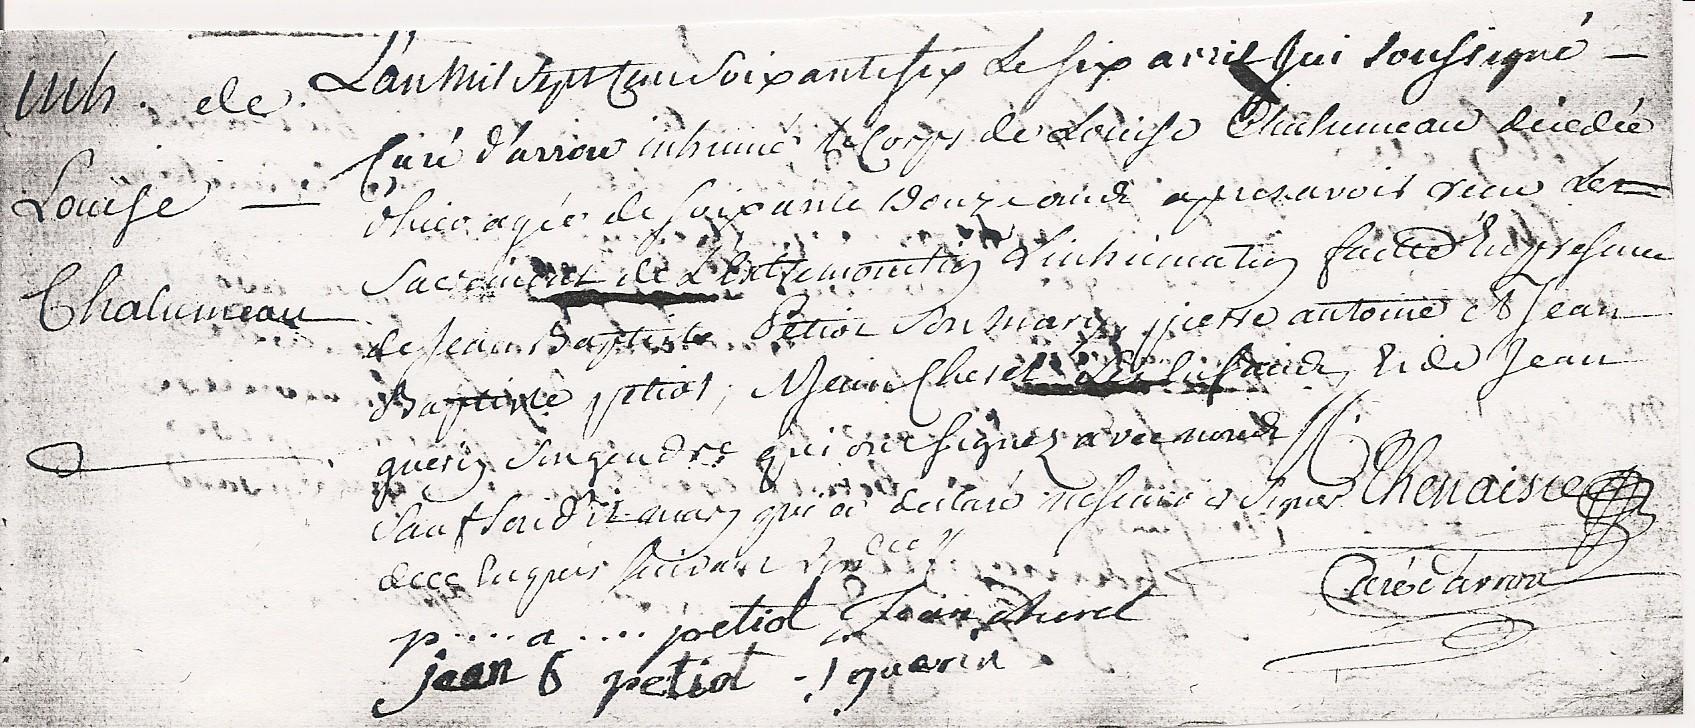 inh. de
Louise
Chalumeau
L'an mil sept cent soixante six le six avril Jai soussigné
Curé d'arrou inhumé le Corps de Louise Chalumeau décedée
agée de soixante douze ans apres avoir receu les
sacrement de L'extremonction L'inhumation faitte En presence
de Jean Baptiste Petiot son mary, pierre antoine et Jean
Baptiste petiot, Jean Cherel ses Enfands, Et de Jean
guerin son gendre qui ont signez avec nous
sauf led. mary qui a declaré ne scavoir signer
de ce Enquis suivant
Thenaisie
Curé d'arrou
p.... a.... petiot Jean Cherel
jean b petiot j guerin